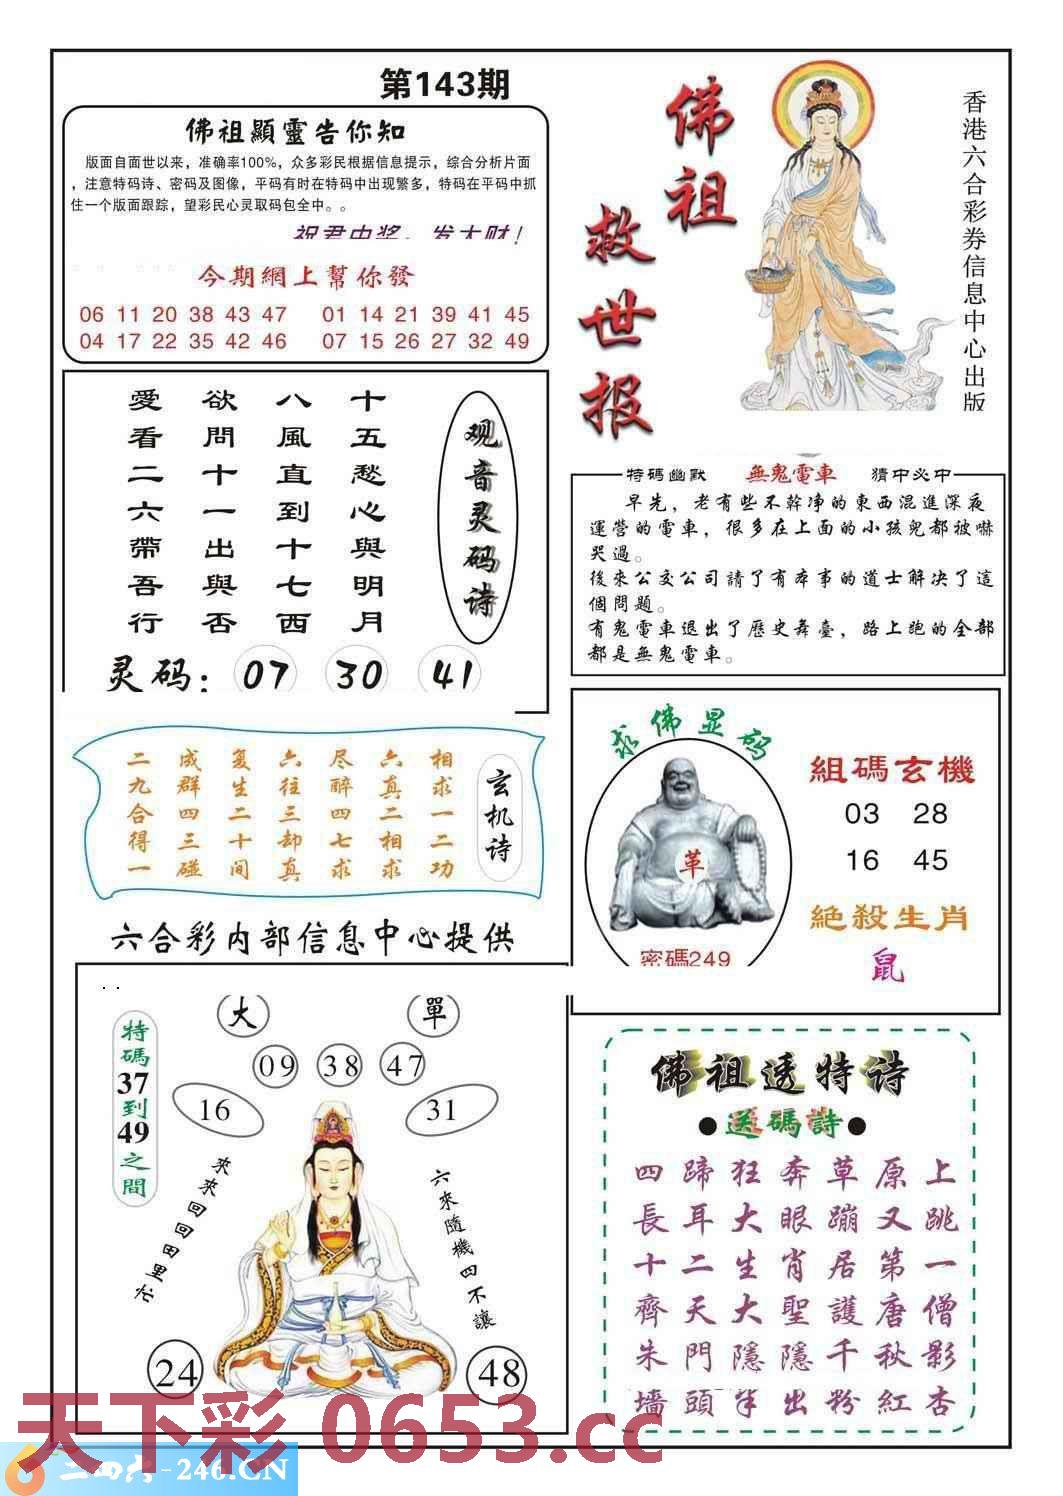 第143期
佛祖顯靈告你知
版面自面世以来，准确率100%，众多彩民根据信息提示，综合分析片面
，注意特码诗、密码及图像，平码有时在特码中出现繁多，特码在平码中抓
住一个版面跟踪，望彩民心灵取码包全中。。
祝君中奖，发大财！
今期網上幫你發
06 11 20 38 43 47 01 14 21 39 41 45
04 17 22 35 42 46 07 15 26 27 32 49
佛祖
救世报
香港六合彩券信息中心出版
观音灵码诗
十五愁心與明月
八風直到十七西
欲問十一出與否
愛看二六帶吾行
灵码：07 30 41
特碼幽默 無鬼電車 猜中必中
早先，老有些不幹净的東西混進深夜
運营的電車，很多在上面的小孩兒都被嚇
哭過。
後來公交公司請了有本事的道士解决了這
個問題。
有鬼電車退出了歷史舞臺，路上跑的全部
都是無鬼電車。
玄机诗
相求一二功
六真二相求
尽醉四七求
六往三却真
复生二十间
成群四三碰
二九合得一
求佛显码
革
密碼249
組碼玄機
03 28
16 45
絕殺生肖
鼠
六合彩内部信息中心提供
大 單
09 38 47
16 31
特碼37到49之間
來來回回田里忙
六來隨機四不讓
24 48
佛祖透特诗
●送碼詩●
四蹄狂奔草原上
長耳大眼蹦又跳
十二生肖居第一
齊天大聖護唐僧
朱門隱隱千秋影
墻頭半出粉紅杏
天下彩 0653.cc
二四六-246.CN